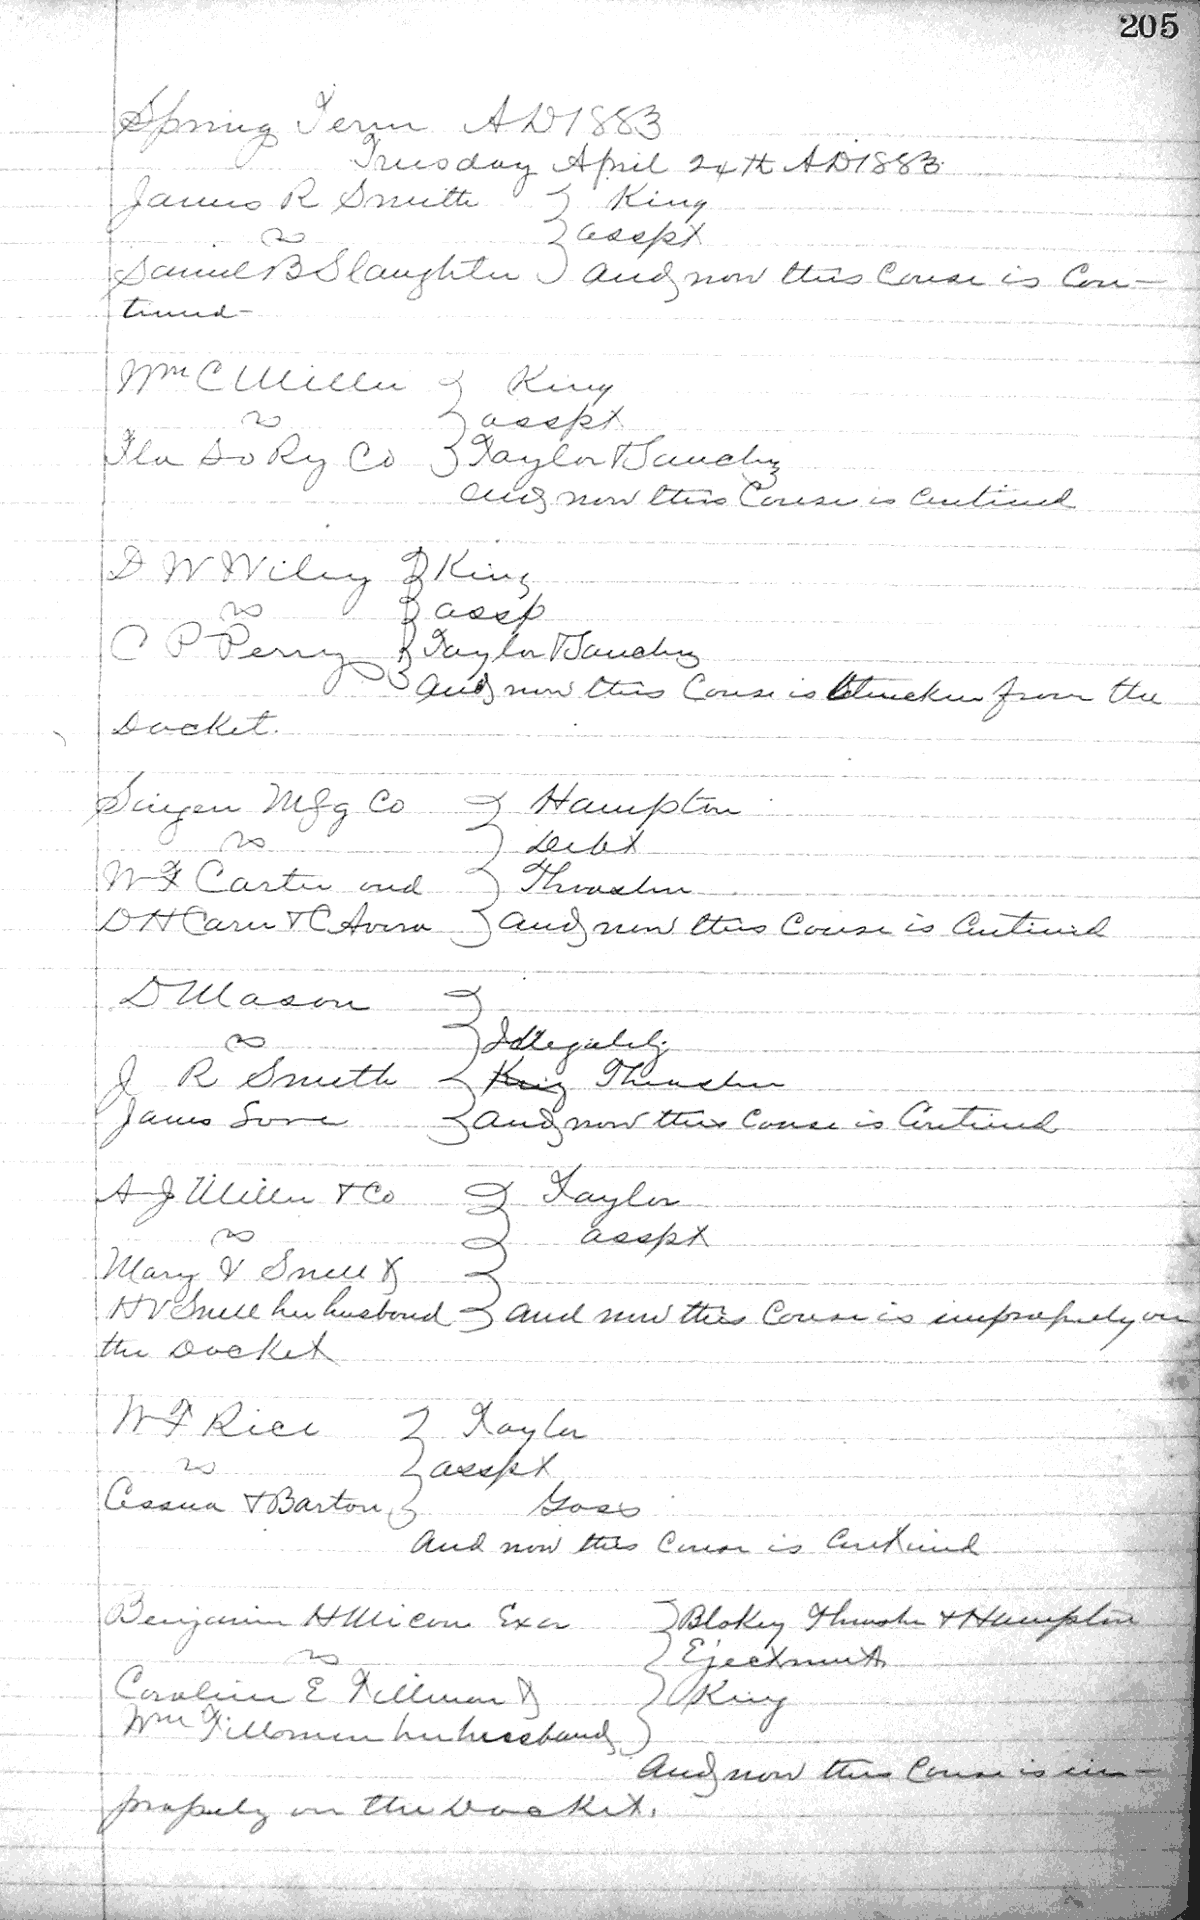 205
Spring Term AD 1883
Tuesday April 24th AD 1883
James R Smith } King
vs } asspt
Samuel B Slaughter } and now this Couse is Con-
tinued-
Wm C Miller } King
vs } asspt
Fla So Ry Co } Taylor &
and now this Couse is Continued
D W Wiley } King
vs } assp
C P Perry } Taylor &
and now this Couse is Stricken from the
Docket.
Singer Mfg Co } Hampton
vs } Debt
W F Carter and } Thrasher
D H Carn & C Avera } and now this Couse is Continued
D Mason }
vs } Illegality
J R Smith } King Thrasher
James } and now this Couse is Continued
A J Miller & Co } Taylor
vs } asspt
Mary V Snell &
H V Snell her husband } and now this Couse is improperly on
the Docket
W F Rice } Taylor
vs } asspt
Cessna & Barton } Goss
and now this Couse is Continued
Benjamin H Micou Exor } Blakey Thrasher & Hampton
vs } Ejectment
Caroline E Tillman & } King
Wm Tillman her husband }
and now this Couse is im-
properly on the Docket.